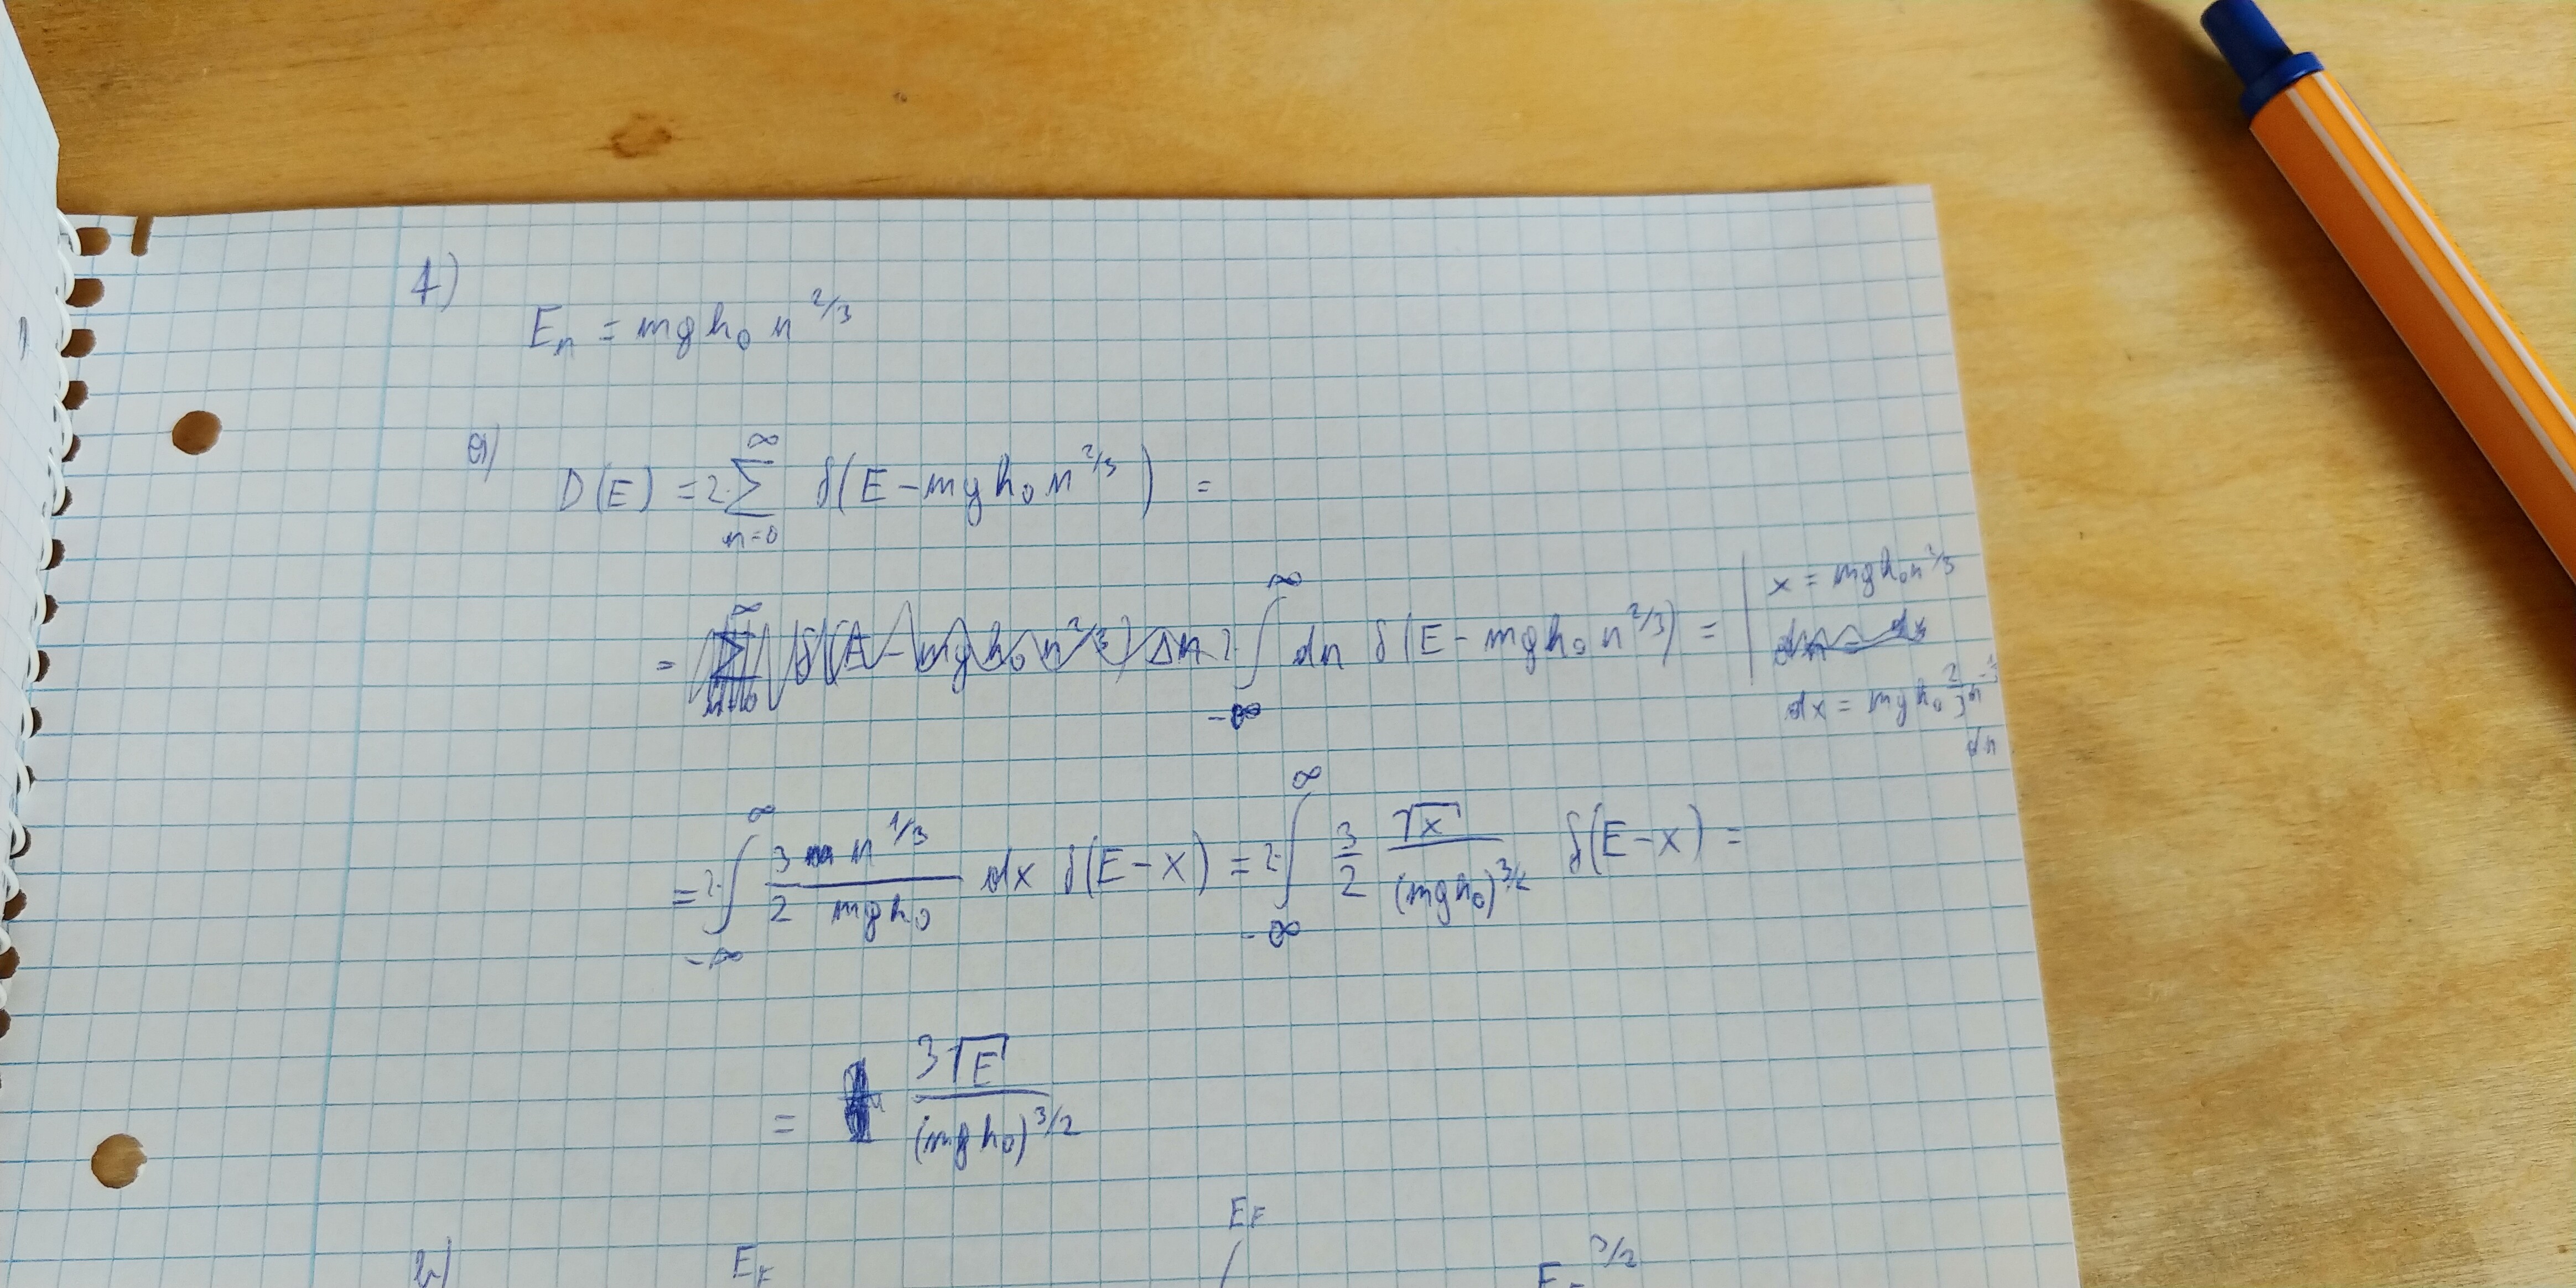 1)
E_n = mgh_0 n^{2/3}
a) D(E) = 2·∑_{n=0}^{∞} δ(E - mgh_0 n^{2/3}) =
= 2·∫_{-∞}^{∞} dn δ(E - mgh_0 n^{2/3}) = | x = mgh_0 n^{2/3}
dx = mgh_0 2/3 n^{-1/3} dn
= 2·∫_{-∞}^{∞} 3/2 n^{1/3}/mgh_0 dx δ(E - x) = 2·∫_{-∞}^{∞} 3/2 √x/(mgh_0)^{3/2} δ(E - x) =
= 3√E/(mgh_0)^{3/2}
b) E_F E_F E_F^{3/2}